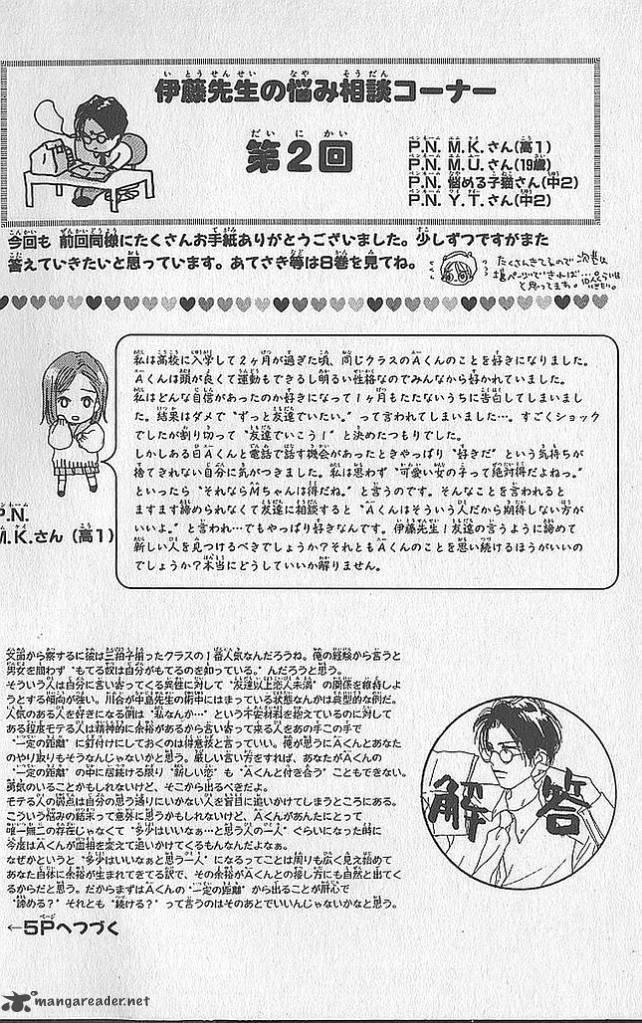 伊藤先生の悩み相談コーナー
第2回
P.N. M.K.さん(高1)
P.N. M.U.さん(19歳)
P.N. 悩める子猫さん(中2)
P.N. Y.T.さん(中2)
今回も 前回同様にたくさんお手紙ありがとうございました。少しずつですがまた
答えていきたいと思っています。あてさき等は8巻を見てね。
たくさんきてるので 次巻は
と思ってます。
私は高校に入学して2ヶ月が過ぎた頃、同じクラスのAくんのことを好きになりました。
Aくんは頭が良くて運動もできるし明るい性格なのでみんなから好かれていました。
私はどんな自信があったのか好きになって1ヶ月もたたないうちに告白してしまいまし
た。結果はダメで“ずっと友達でいたい。”って言われてしまいました…。すごくショック
でしたが割り切って“友達でいこう!”と決めたつもりでした。
しかしある日Aくんと電話で話す機会があったときやっぱり“好きだ”という気持ちが
捨てきれない自分に気がつきました。私は思わず“可愛い女の子って絶対得だよねっ。”
といったら“それならMちゃんは得だね。”と言うのです。そんなことを言われると
ますます諦められなくて友達に相談すると“Aくんはそういう人だから期待しない方が
いいよ。”と言われ…でもやっぱり好きなんです。伊藤先生!友達の言うように諦めて
新しい人を見つけるべきでしょうか?それともAくんのことを思い続けるほうがいいの
でしょうか?本当にどうしていいか解りません。
P.N.
M.K.さん(高1)
文面から察するに彼は三拍子揃ったクラスの1番人気なんだろうね。俺の経験から言うと
男女を問わず“もてる奴は自分がもてるのを知っている。”んだろうと思う。
そういう人は自分に言い寄ってくる異性に対して“友達以上恋人未満”の関係を維持しよ
うとする傾向が強い。川合が中島先生の術中にはまっている状態なんかは典型的な例だ。
人気のある人を好きになる側は“私なんか…”という不安材料を抱えているのに対して
ある程度モテる人は精神的に余裕があるから言い寄って来る人をあの手この手で
“一定の距離”に釘付けにしておくのは得意技と言っていい。俺が思うにAくんとあなた
のやり取りもそうなんじゃないかと思う。厳しい言い方をすれば、あなたがAくんの
“一定の距離”の中に居続ける限り“新しい恋”も“Aくんと付き合う”こともできない。
勇気のいることかもしれないけど、そこから出るべきだよ。
モテる人の弱点は自分の思う通りにいかない人を盲目に追いかけてしまうところにある。
こういう悩みの結末って意外に思うかもしれないけど、Aくんがあんたにとって
唯一無二の存在じゃなくて“多少はいいなぁ…と思う人の一人”ぐらいになった時に
今度はAくんが血相を変えて追いかけてくるもんなんだよなぁ。
なぜかというと“多少はいいなぁと思う一人”になるってことは周りも広く見え始めて
あなた自体に余裕が生まれてきてる訳で、その余裕がAくんとの接し方にも自然と出てく
るからだと思う。だからまずはAくんの“一定の距離”から出ることが肝心で
“諦める?”それとも“続ける?”って言うのはそのあとでいいんじゃないかなと思う。
←5Pへつづく
解答
mangareader.net